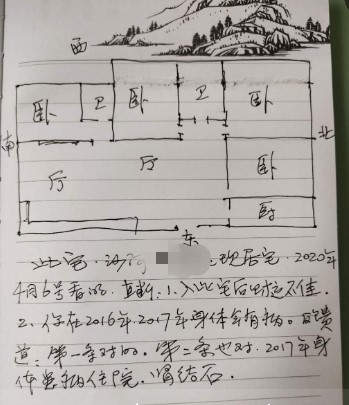 西
卧 卫 卧 卫 卧
南 北
厅 厅 卧
厨
东
此宅 现居宅 2020年
4月6号看的 直断:1.入此宅后财运不佳.
2.你在2016年.2017年身体会有病.反馈
道:第一条对的.第二条也对.2017年身
体患病住院.肾结石.